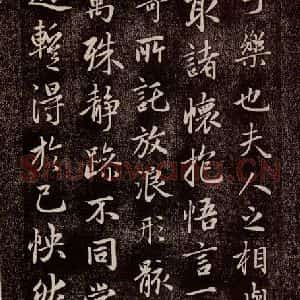 可樂也夫人之相與
取諸懷抱悟言一
寄所託放浪形骸
萬殊静躁不同當
遇暫得於己怏然